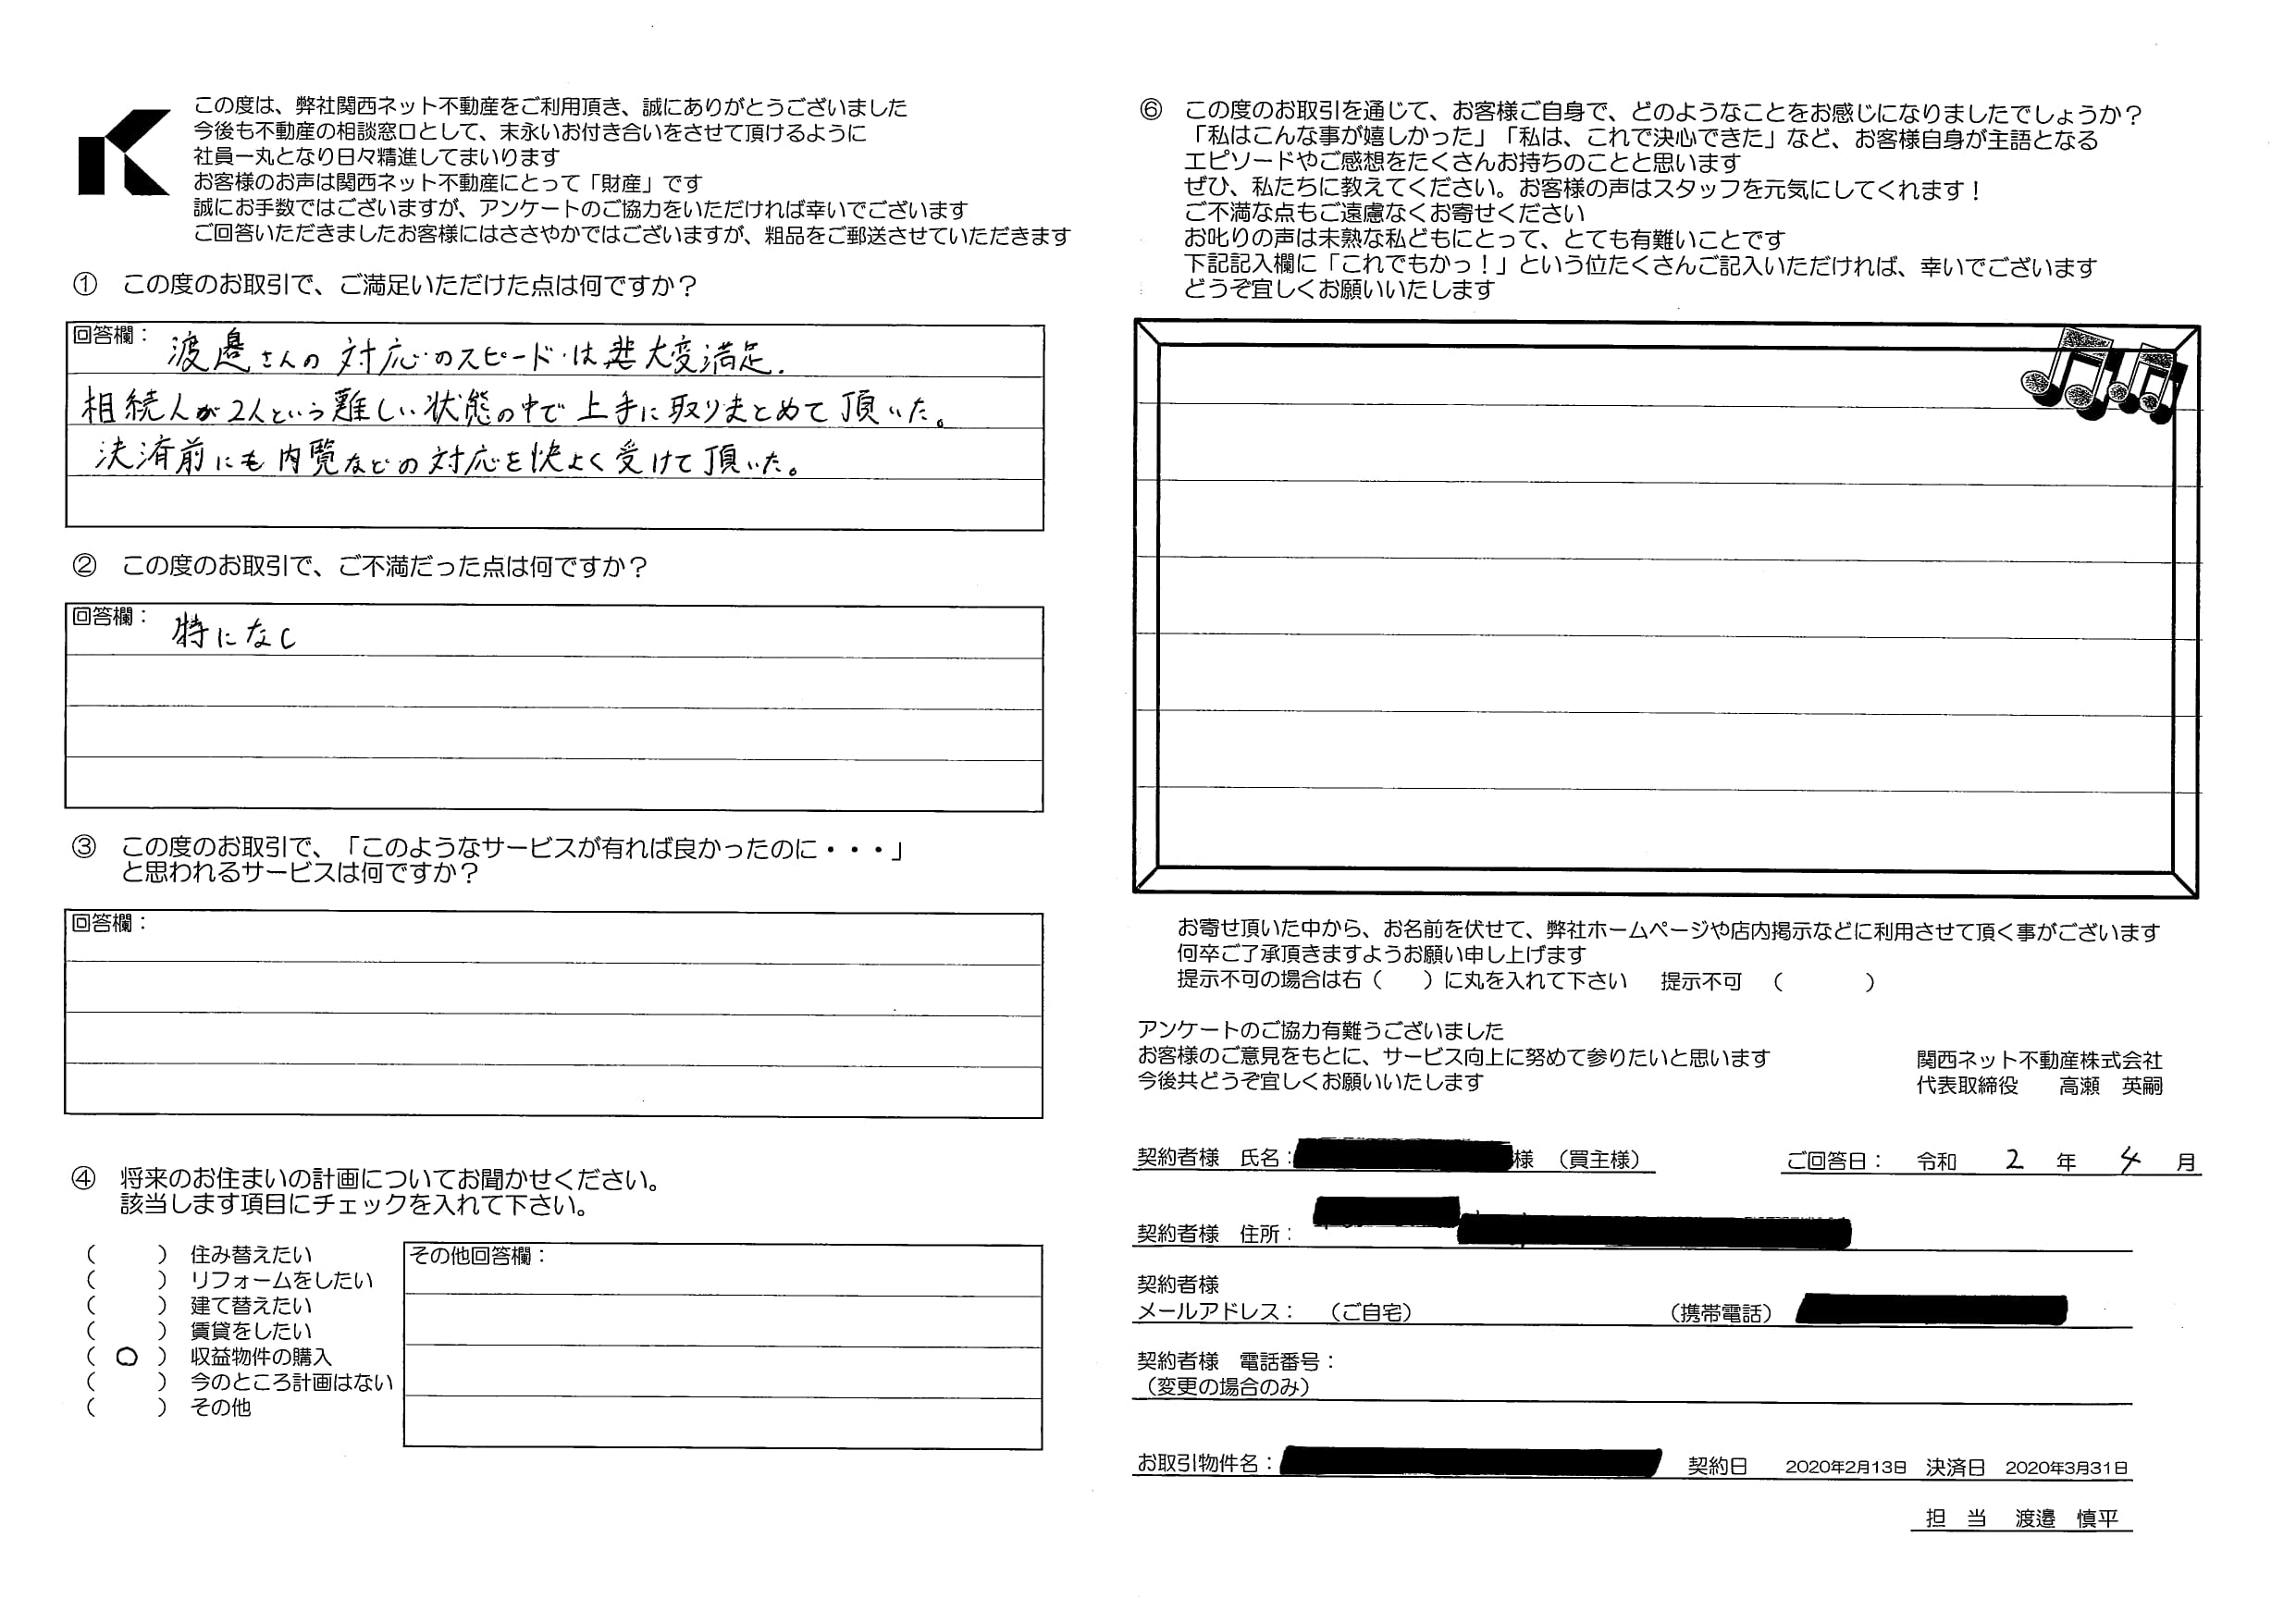 この度は、弊社関西ネット不動産をご利用頂き、誠にありがとうございました
今後も不動産の相談窓口として、末永いお付き合いをさせて頂けるように
社員一丸となり日々精進してまいります
お客様のお声は関西ネット不動産にとって「財産」です
誠にお手数ではございますが、アンケートのご協力をいただければ幸いでございます
ご回答いただきましたお客様にはささやかではございますが、粗品をご郵送させていただきます
① この度のお取引で、ご満足いただけた点は何ですか？
回答欄： 渡邉さんの対応のスピードは大変満足.
相続人が2人という難しい状態の中で上手に取りまとめて頂いた。
決済前にも内覧などの対応を快よく受けて頂いた。
② この度のお取引で、ご不満だった点は何ですか？
回答欄： 特になし
③ この度のお取引で、「このようなサービスが有れば良かったのに・・・」
と思われるサービスは何ですか？
回答欄：
④ 将来のお住まいの計画についてお聞かせください。
該当します項目にチェックを入れて下さい。
（　　） 住み替えたい
（　　） リフォームをしたい
（　　） 建て替えたい
（　　） 賃貸をしたい
（ ○ ） 収益物件の購入
（　　） 今のところ計画はない
（　　） その他
その他回答欄：
⑥ この度のお取引を通じて、お客様ご自身で、どのようなことをお感じになりましたでしょうか？
「私はこんな事が嬉しかった」「私は、これで決心できた」など、お客様自身が主語となる
エピソードやご感想をたくさんお持ちのことと思います
ぜひ、私たちに教えてください。お客様の声はスタッフを元気にしてくれます！
ご不満な点もご遠慮なくお寄せください
お叱りの声は未熟な私どもにとって、とても有難いことです
下記記入欄に「これでもかっ！」という位たくさんご記入いただければ、幸いでございます
どうぞ宜しくお願いいたします
お寄せ頂いた中から、お名前を伏せて、弊社ホームページや店内掲示などに利用させて頂く事がございます
何卒ご了承頂きますようお願い申し上げます
提示不可の場合は右（　　）に丸を入れて下さい　提示不可　（　　　　）
アンケートのご協力有難うございました
お客様のご意見をもとに、サービス向上に努めて参りたいと思います
今後共どうぞ宜しくお願いいたします
関西ネット不動産株式会社
代表取締役　高瀬　英嗣
契約者様　氏名： 様　（買主様）　ご回答日：　令和　2　年　4　月
契約者様　住所：
契約者様
メールアドレス：　（ご自宅）　（携帯電話）
契約者様　電話番号：
（変更の場合のみ）
お取引物件名： 契約日　2020年2月13日　決済日　2020年3月31日
担　当　渡邉　慎平